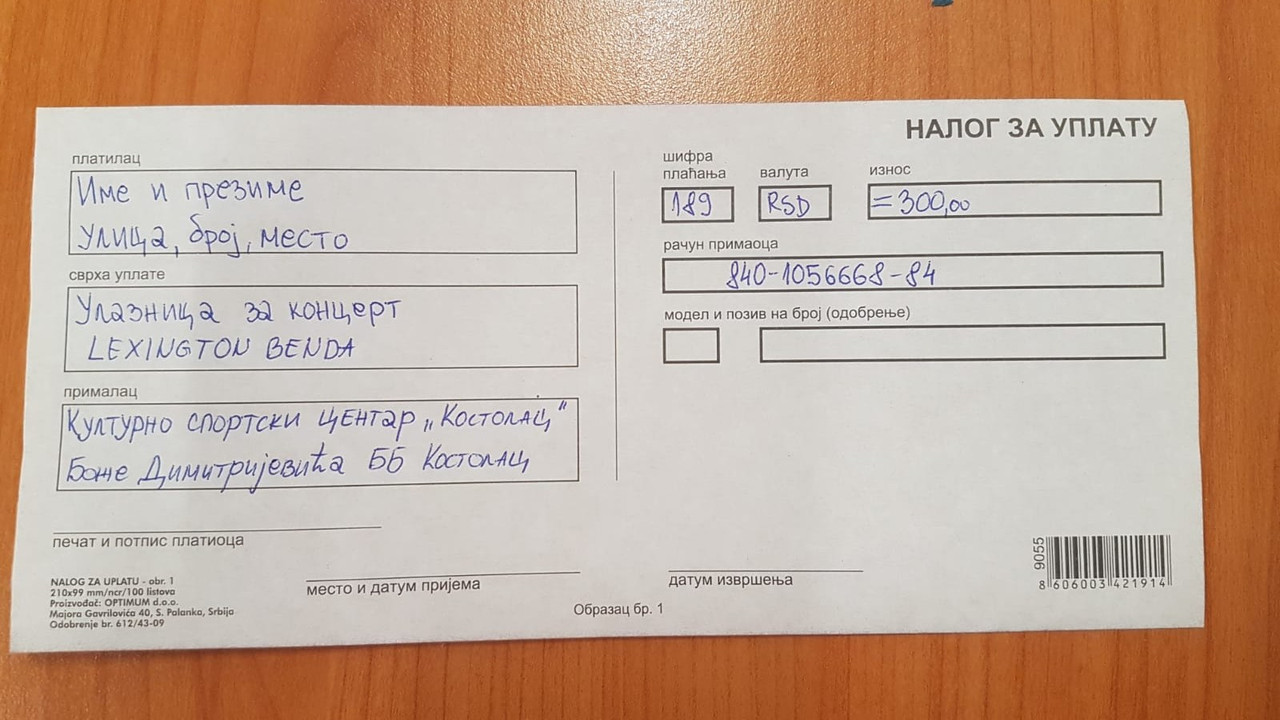 НАЛОГ ЗА УПЛАТУ
платилац
Име и презиме
Улица, број, место
сврха уплате
Улазница за концерт
LEXINGTON BENDA
прималац
Културно спортски центар „Костолац“
Боже Димитријевића ББ Костолац
печат и потпис платиоца
место и датум пријема
шифра
плаћања
189
валута
RSD
износ
=300,00
рачун примаоца
840-1056668-84
модел и позив на број (одобрење)
датум извршења
NALOG ZA UPLATU - obr. 1
210x99 mm/ncr/100 listova
Proizvođač: OPTIMUM d.o.o.
Majora Gavrilovića 40, S. Palanka, Srbija
Odobrenje br. 612/43-09
Образац бр. 1
9055
8 606003 421914